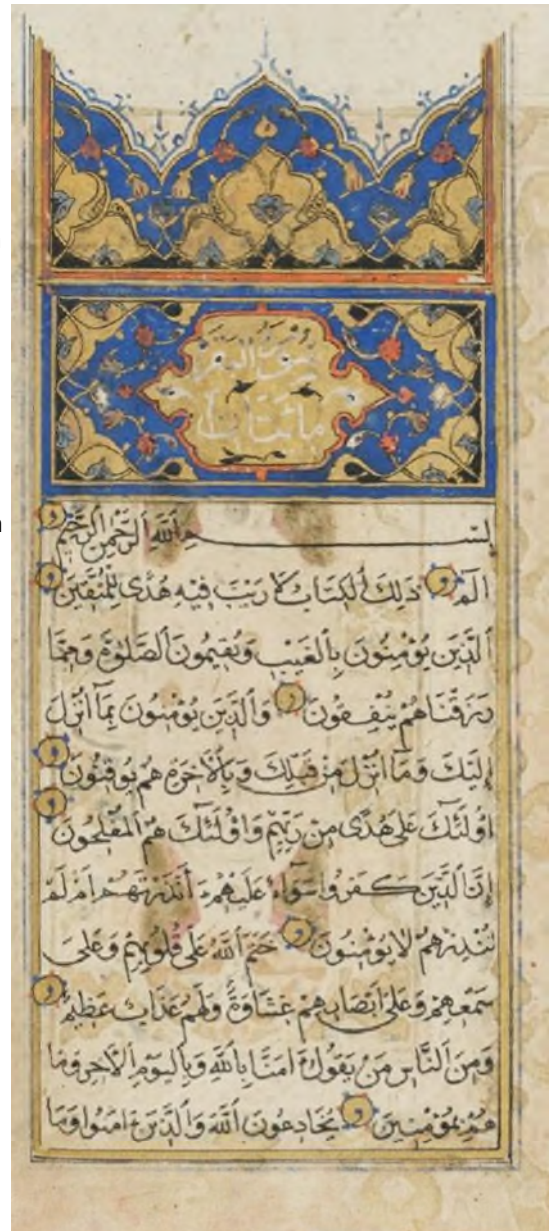 سورة البقرة
مائتان
بسم الله الرحمن الرحيم
الم ذَلِكَ ٱلكِتَابُ لَا رَيْبَ فِيْهِ هُدًى لِلْمُتَّقِيْنَ
ٱلَّذِيْنَ يُؤْمِنُونَ بِٱلغَيْبِ وَيُقِيمُونَ ٱلصَّلٰوةَ وَمِمَّا
رَزَقْنَاهُمْ يُنْفِقُونَ وَٱلَّذِيْنَ يُؤْمِنُونَ بِمَآ اُنْزِلَ
اِلَيْكَ وَمَآ اُنْزِلَ مِنْ قَبْلِكَ وَبِٱلْاٰخِرَةِ هُمْ يُوقِنُونَ
اُولٰٓئِكَ عَلٰى هُدًى مِنْ رَبِّهِمْ وَاُولٰٓئِكَ هُمُ ٱلمُفْلِحُونَ
اِنَّ ٱلَّذِيْنَ كَفَرُوا سَوَآءٌ عَلَيْهِمْ ءَأَنْذَرْتَهُمْ اَمْ لَمْ
تُنْذِرْهُمْ لَا يُؤْمِنُونَ خَتَمَ ٱللّٰهُ عَلٰى قُلُوبِهِمْ وَعَلٰى
سَمْعِهِمْ وَعَلٰى اَبْصَارِهِمْ غِشَاوَةٌ وَلَهُمْ عَذَابٌ عَظِيْمٌ
وَمِنَ ٱلنَّاسِ مَنْ يَقُولُ ءَامَنَّا بِٱللّٰهِ وَبِٱليَوْمِ ٱلْاٰخِرِ وَمَا
هُمْ بِمُؤْمِنِيْنَ يُخَادِعُونَ ٱللّٰهَ وَٱلَّذِيْنَ ءَامَنُوا وَمَا